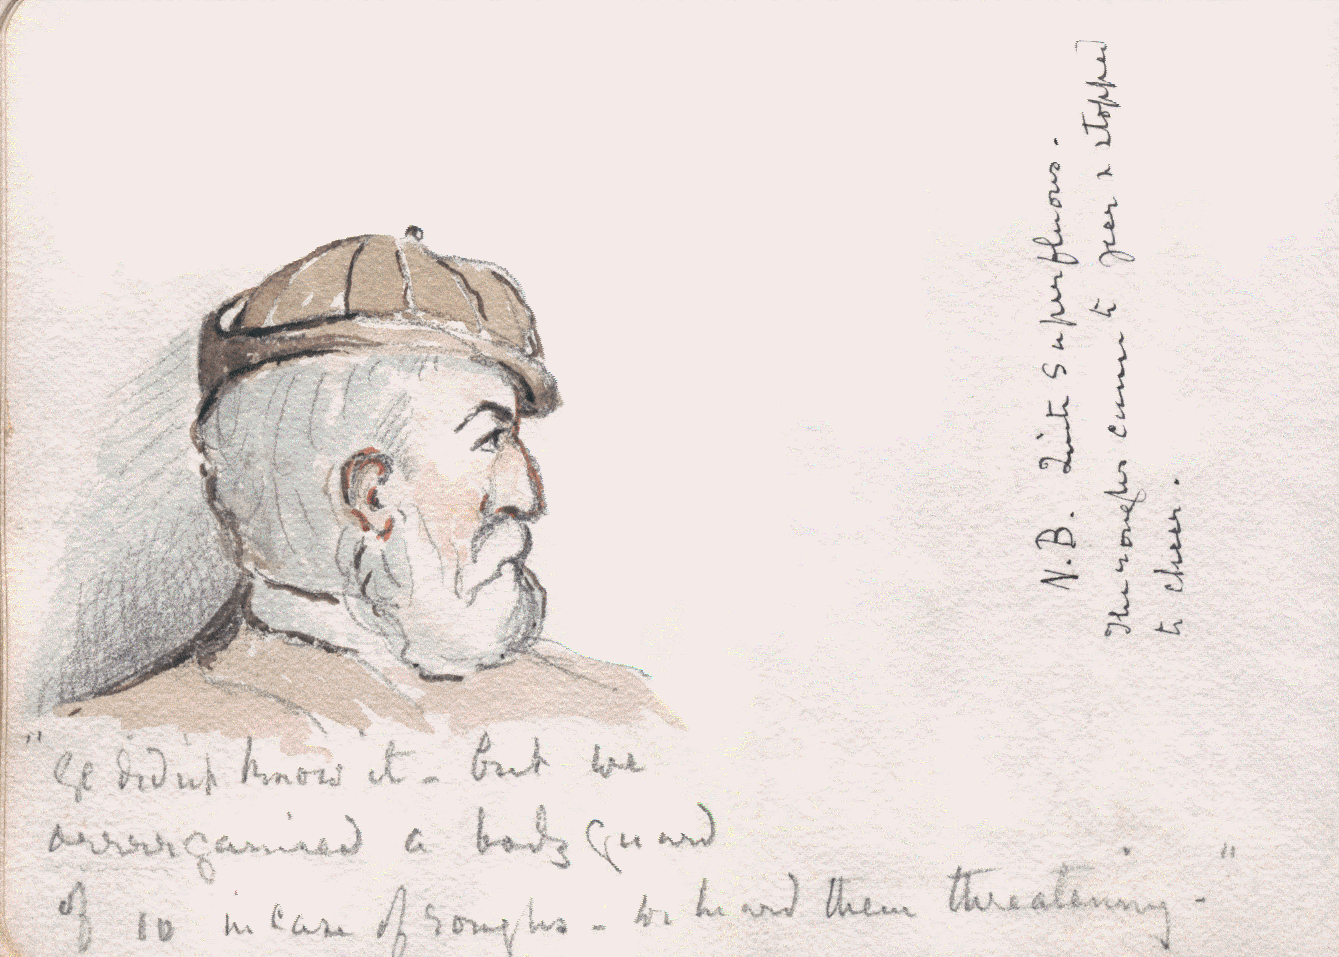 "Ye didn't know it - but we
orrrrganised a body guard
of 10 in case of roughs - we heard them threatening - "
N.B. Quite Superfluous.
The roughs came to jeer & stopped
to cheer.